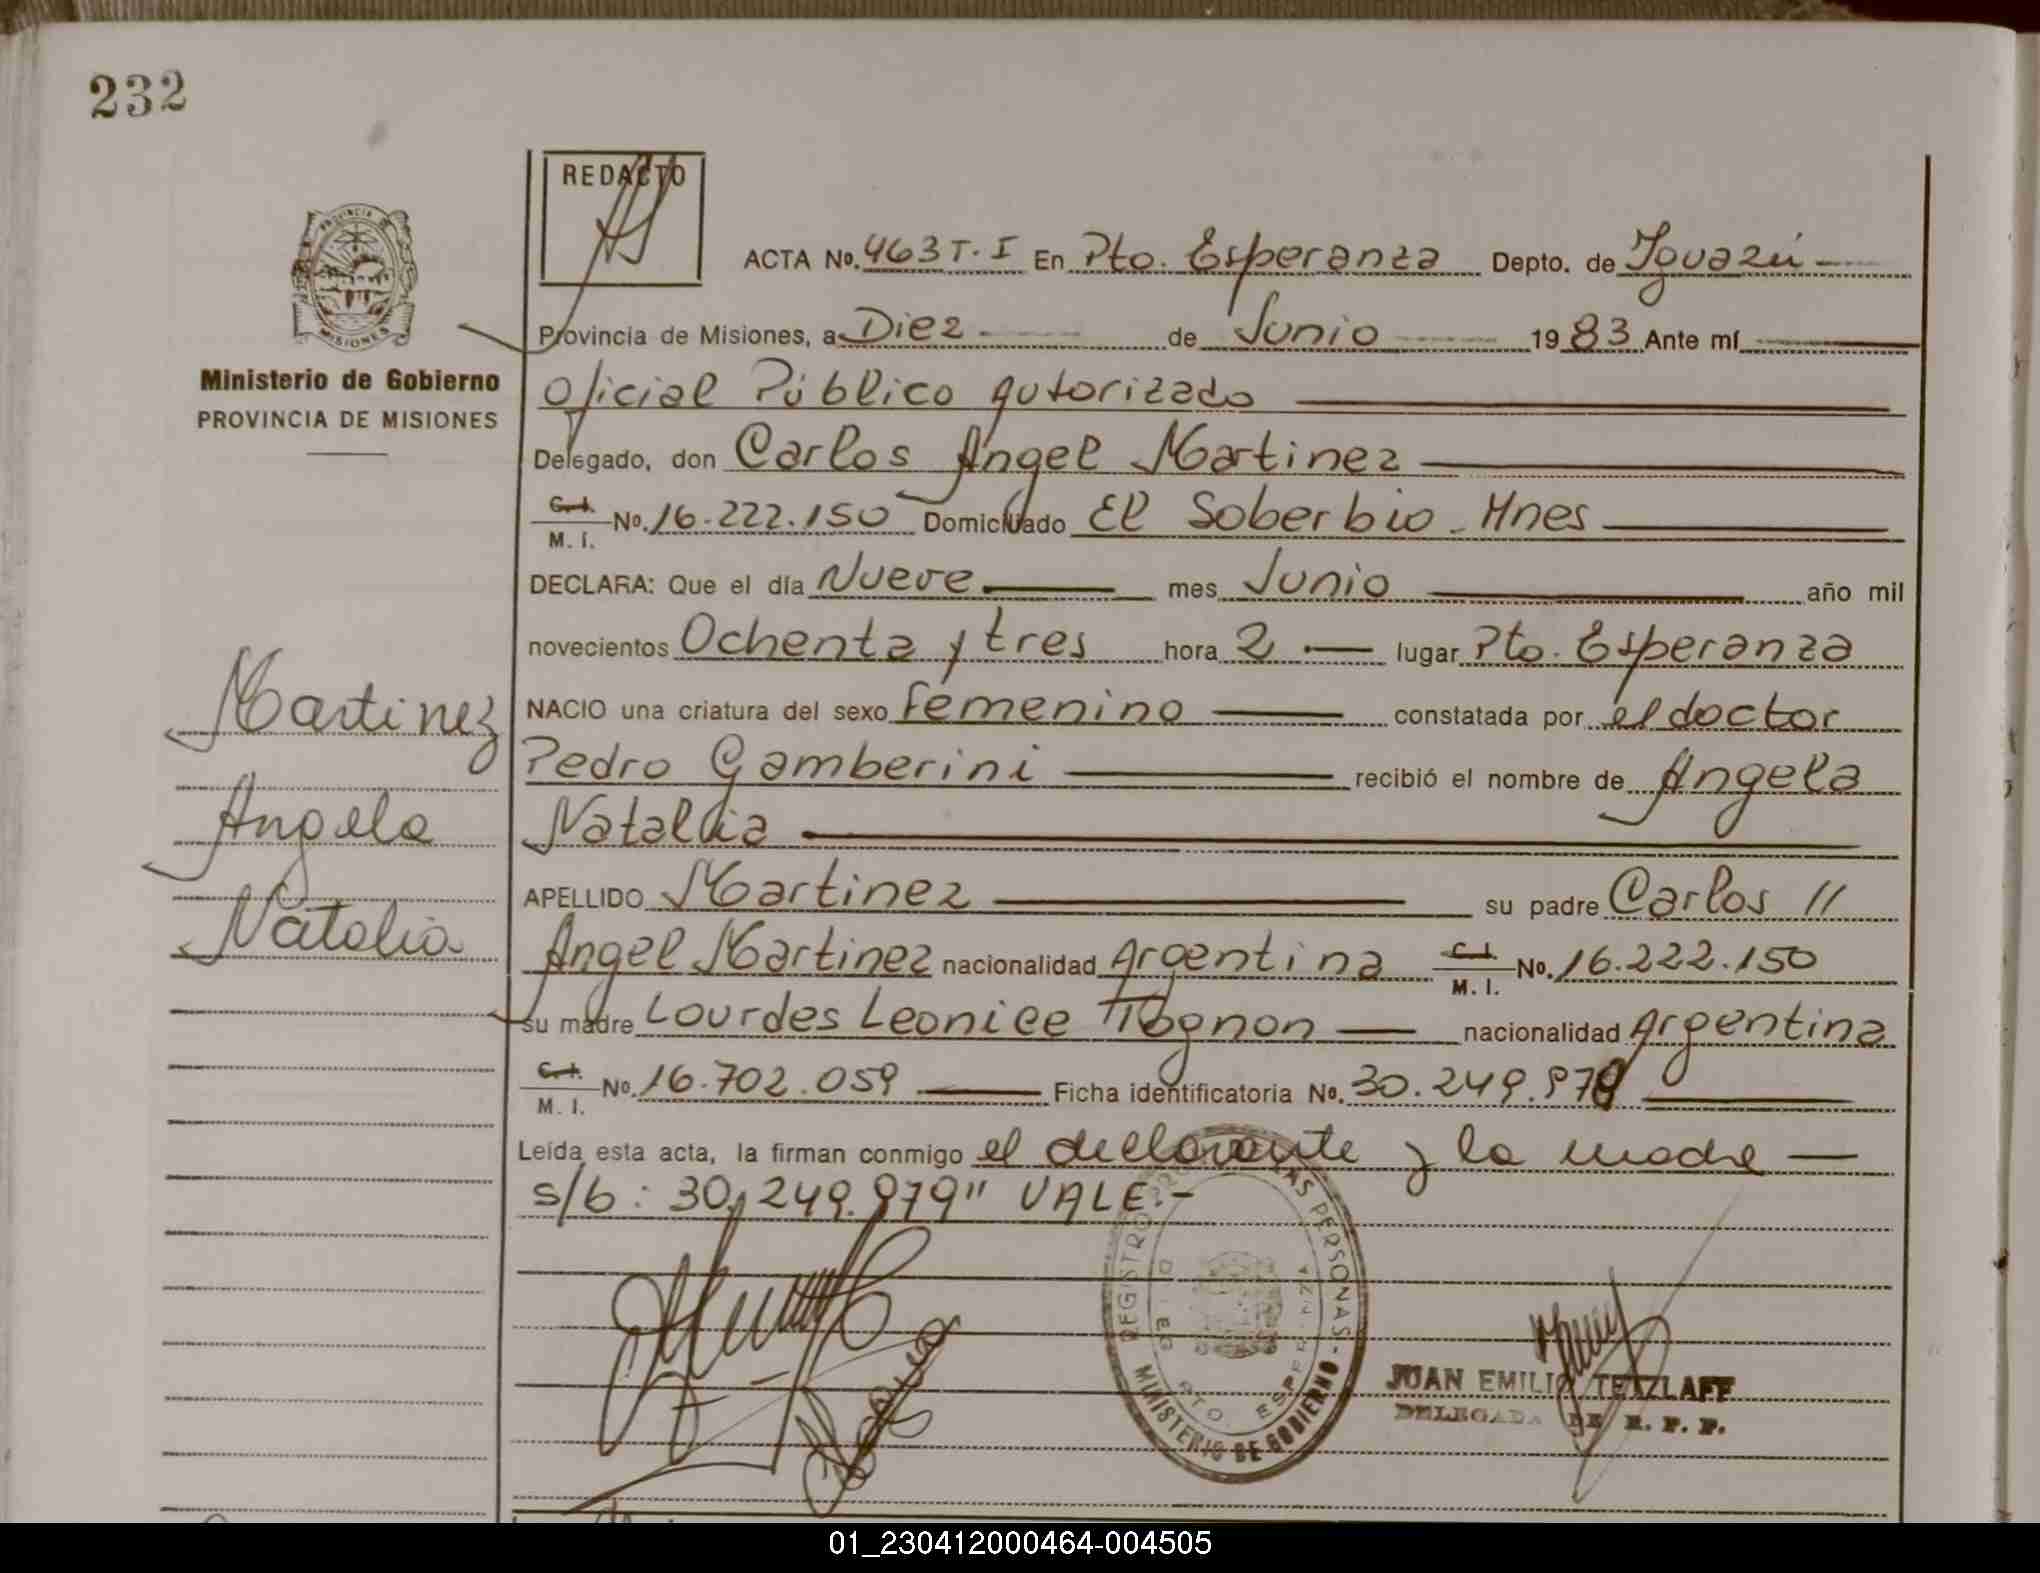 232
REDACTO
ACTA No. 463 T. I En Pto. Esperanza Depto. de Iguazú
Provincia de Misiones, a Diez de Junio 1983 Ante mí
Oficial Público Autorizado
Delegado, don Carlos Angel Martinez
C.I. M. I. No. 16.222.150 Domiciliado El Soberbio - Mnes
DECLARA: Que el día Nueve mes Junio año mil
novecientos Ochenta y tres hora 2 lugar Pto. Esperanza
NACIO una criatura del sexo Femenino constatada por el doctor
Pedro Gamberini recibió el nombre de Angela
Natalia
APELLIDO Martinez su padre Carlos //
Angel Martinez nacionalidad Argentina C.I. M. I. No. 16.222.150
su madre Lourdes Leonice Tognon nacionalidad Argentina
C.I. M. I. No. 16.702.059 Ficha identificatoria No. 30.249.979
Leída esta acta, la firman conmigo el declarante y la madre
s/b: 30.249.979" VALE.-
PROVINCIA DE MISIONES
Ministerio de Gobierno
PROVINCIA DE MISIONES
Martinez
Angela
Natalia
REGISTRO PERSONAS - MINISTERIO DE GOBIERNO
PTO. ESPERANZA
JUAN EMILIO TETZLAFF
DELEGADA DE R. P. P.
01_230412000464-004505